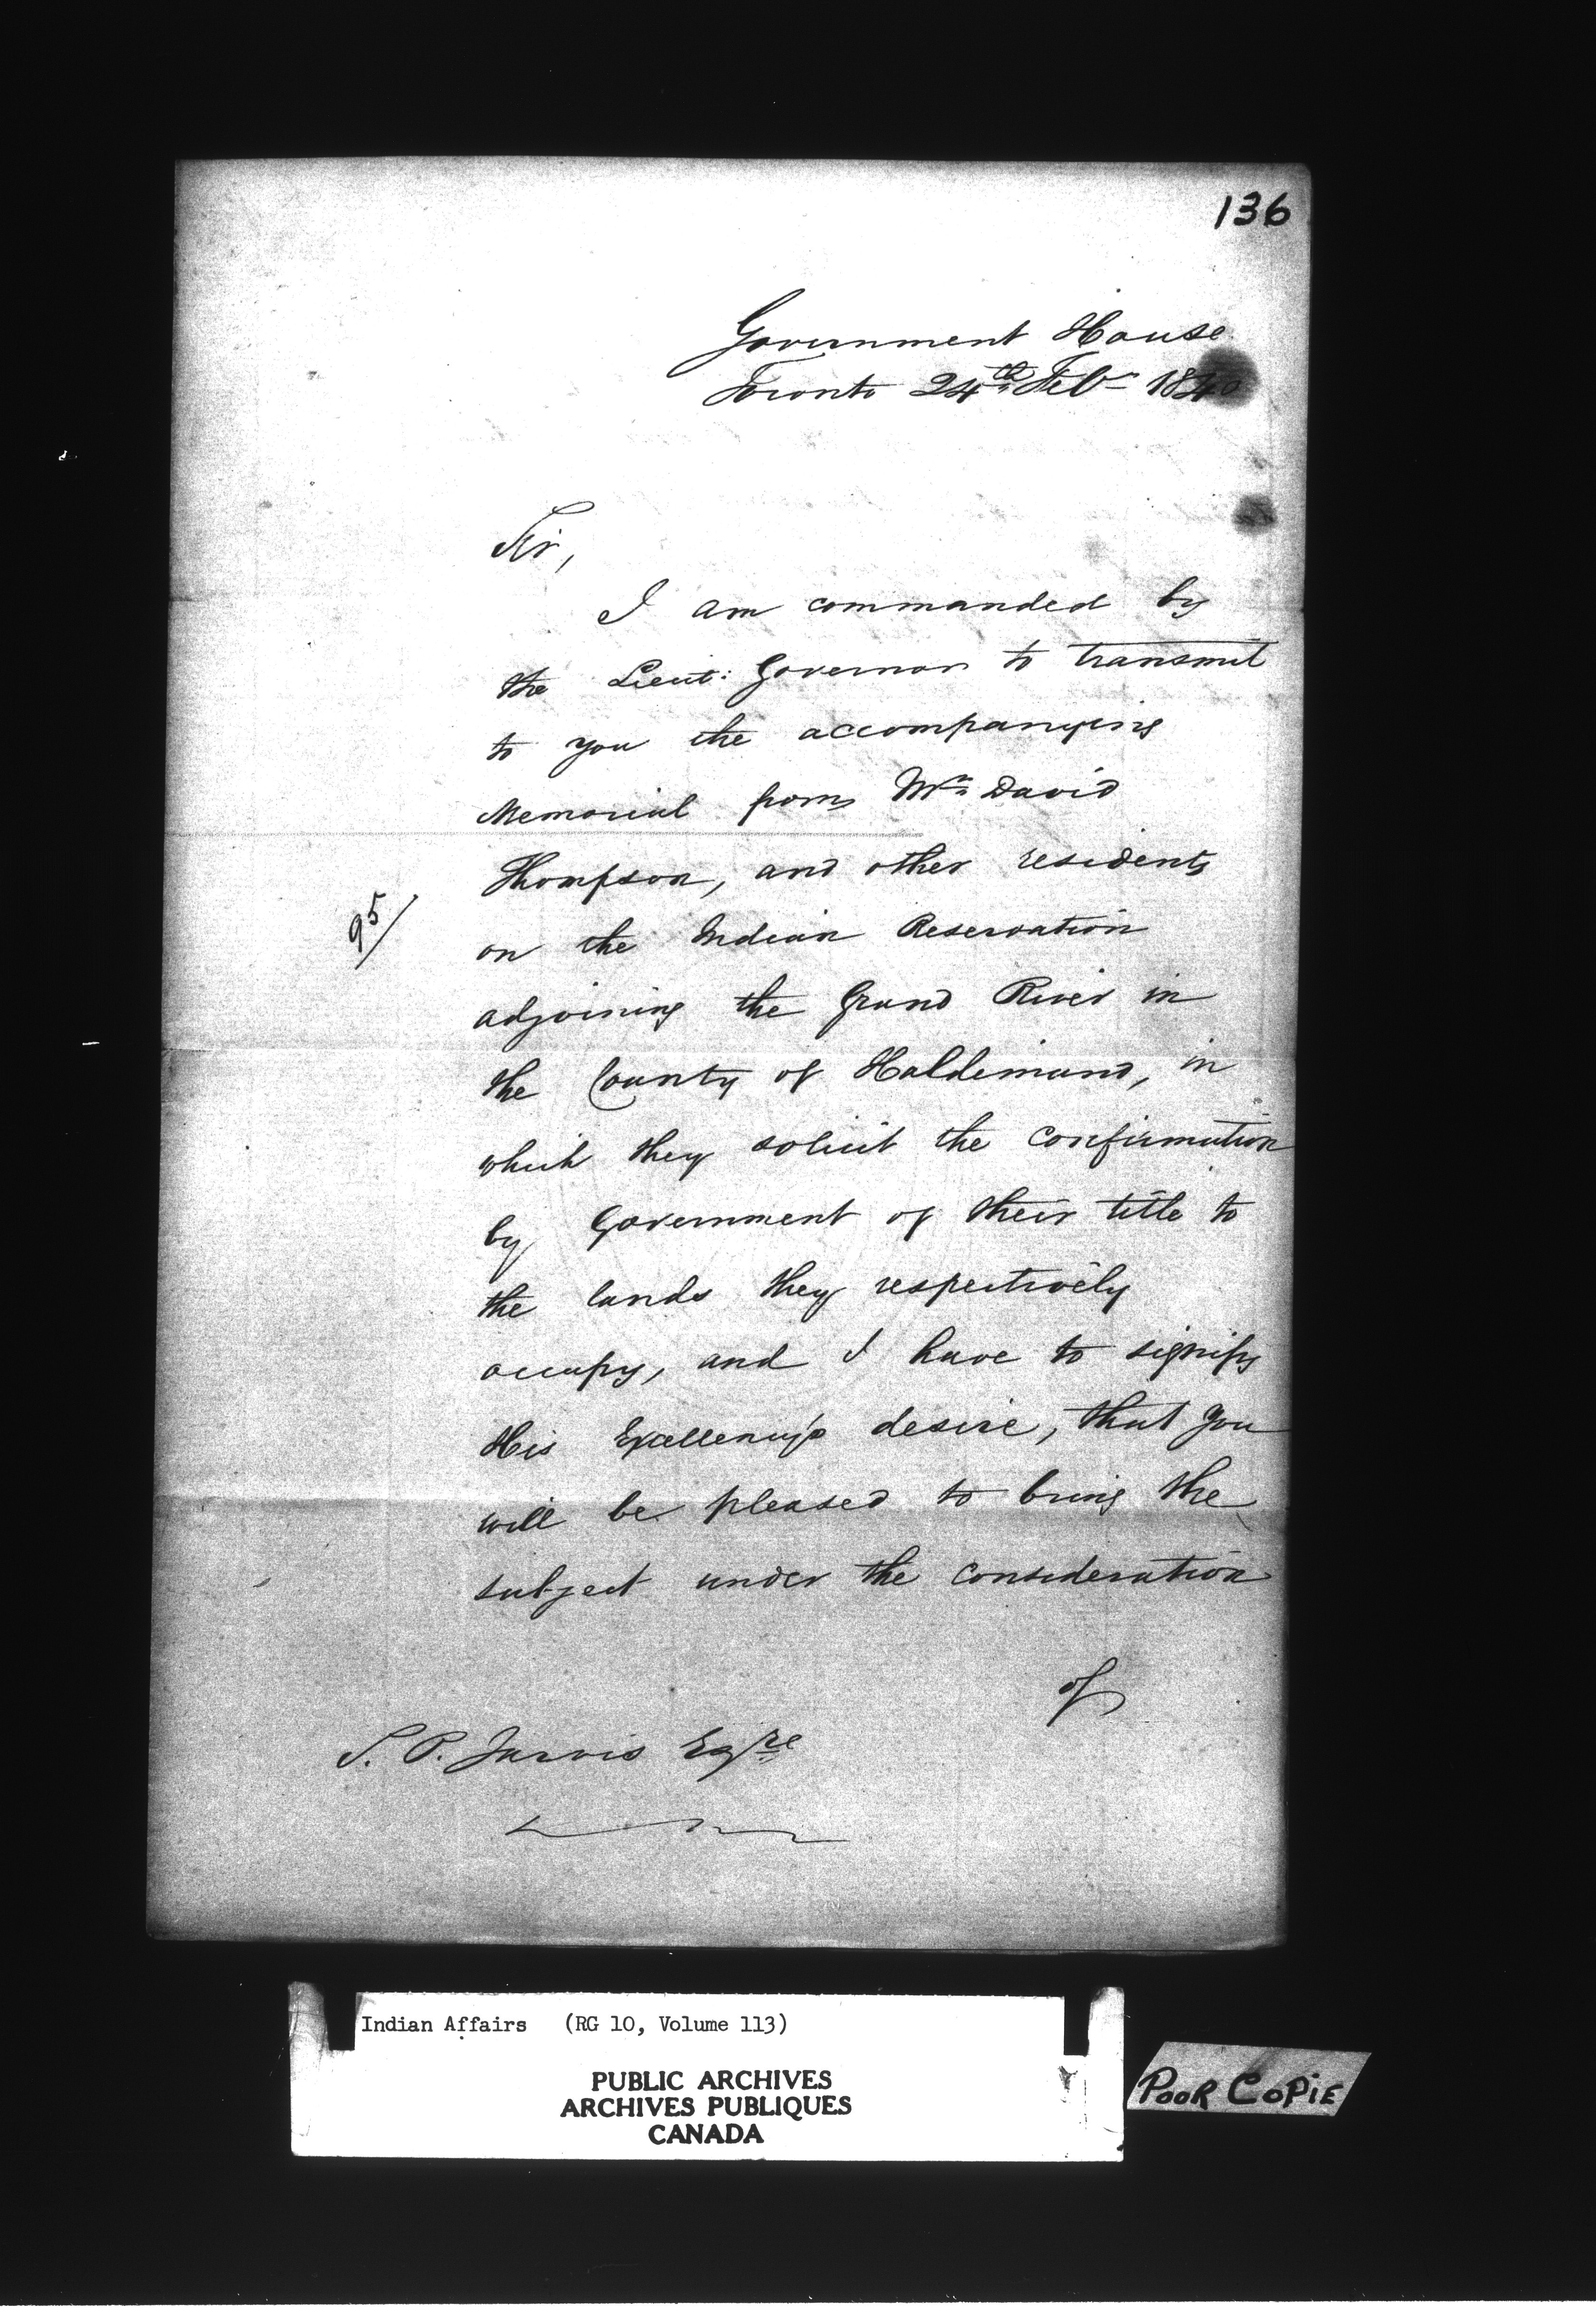 136
Government House
Toronto 24th Feb 1840
Sir,
I am commanded by
the Lieut: Governor to transmit
to you the accompanying
Memorial from Mr David
Thompson, and other residents
95/
on the Indian Reservation
adjoining the Grand River in
the County of Haldimand, in
which they solicit the confirmation
by Government of their title to
the lands they respectively
occupy, and I have to signify
His Excellency's desire, that you
will be pleased to bring the
subject under the consideration
of
S. P. Jarvis Esqre
Indian Affairs (RG 10, Volume 113)
PUBLIC ARCHIVES
ARCHIVES PUBLIQUES
CANADA
POOR COPIE